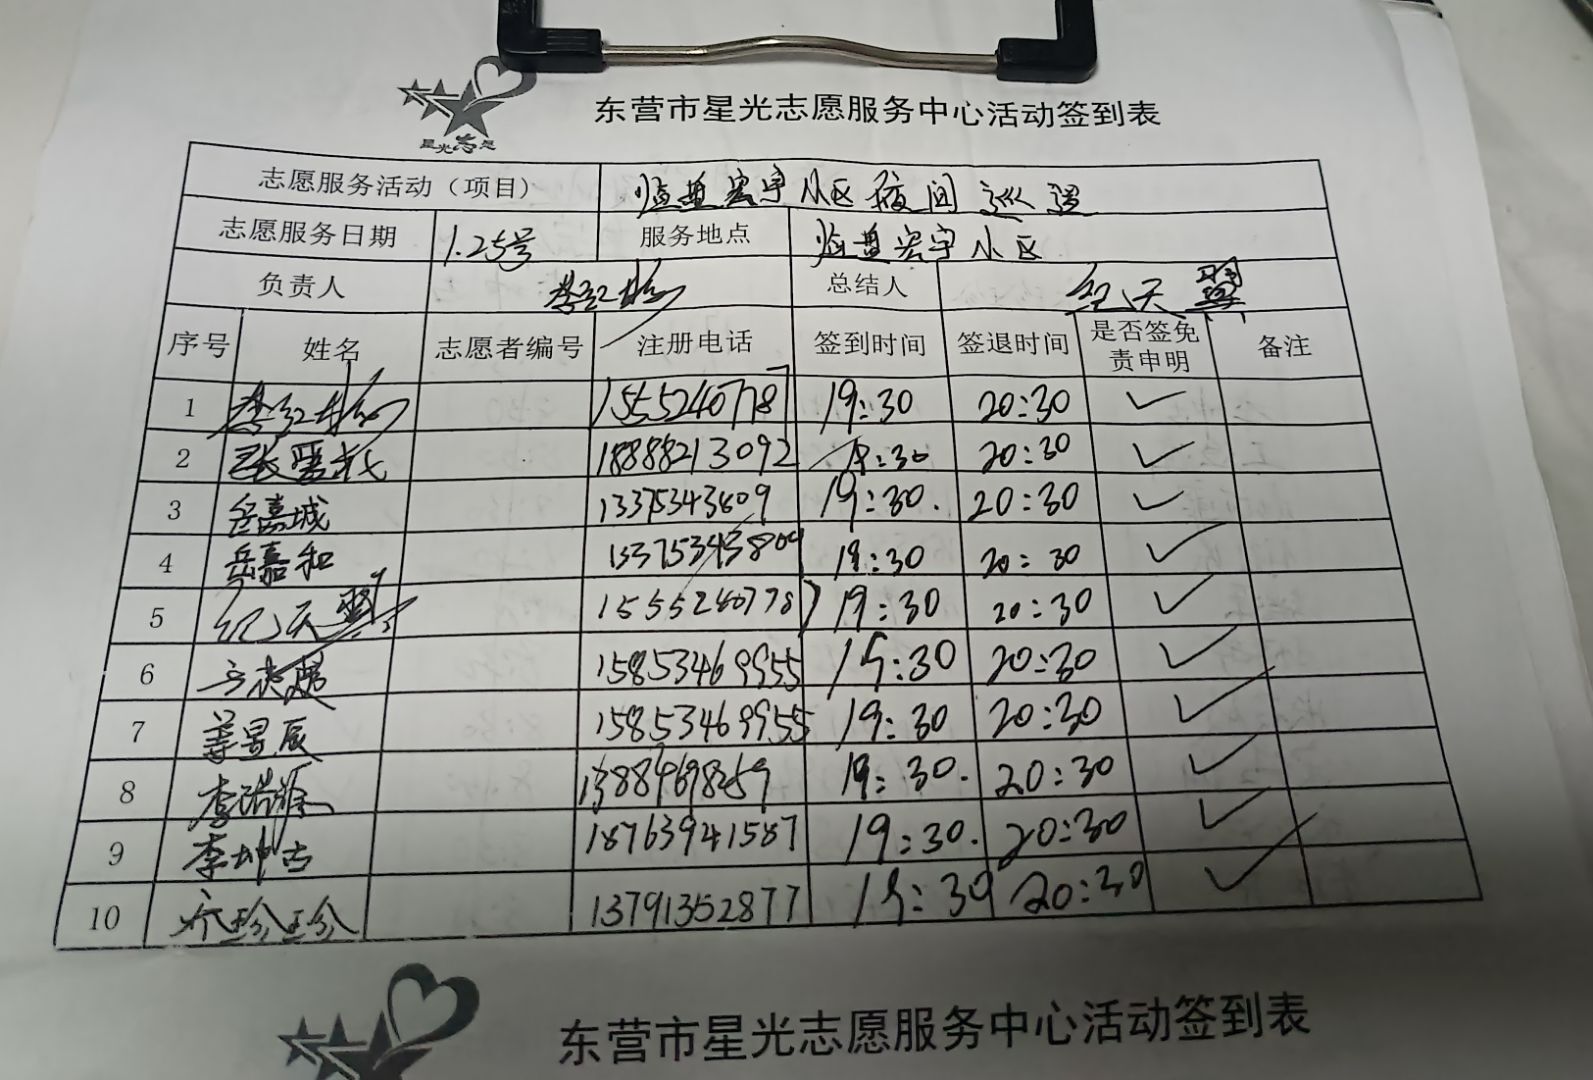 星光志愿
东营市星光志愿服务中心活动签到表
志愿服务活动（项目） 临盘宏宇小区夜间巡逻
志愿服务日期 1.25号 服务地点 临盘宏宇小区
负责人 李红梅 总结人 纪天翼
序号 姓名 志愿者编号 注册电话 签到时间 签退时间 是否签免责申明 备注
1 李红梅 15552407787 19:30 20:30 ✓
2 18888213092 19:30 20:30 ✓
3 岳嘉城 13375343809 19:30. 20:30 ✓
4 岳嘉和 13375343809 19:30 20:30 ✓
5 纪天翼 15552407787 19:30 20:30 ✓
6 15853469955 19:30 20:30 ✓
7 姜昱辰 15853469955 19:30 20:30 ✓
8 13884698259 19:30. 20:30 ✓
9 李坤吉 18763941587 19:30. 20:30 ✓
10 乔珍珍 13791352877 19:30 20:30 ✓
东营市星光志愿服务中心活动签到表